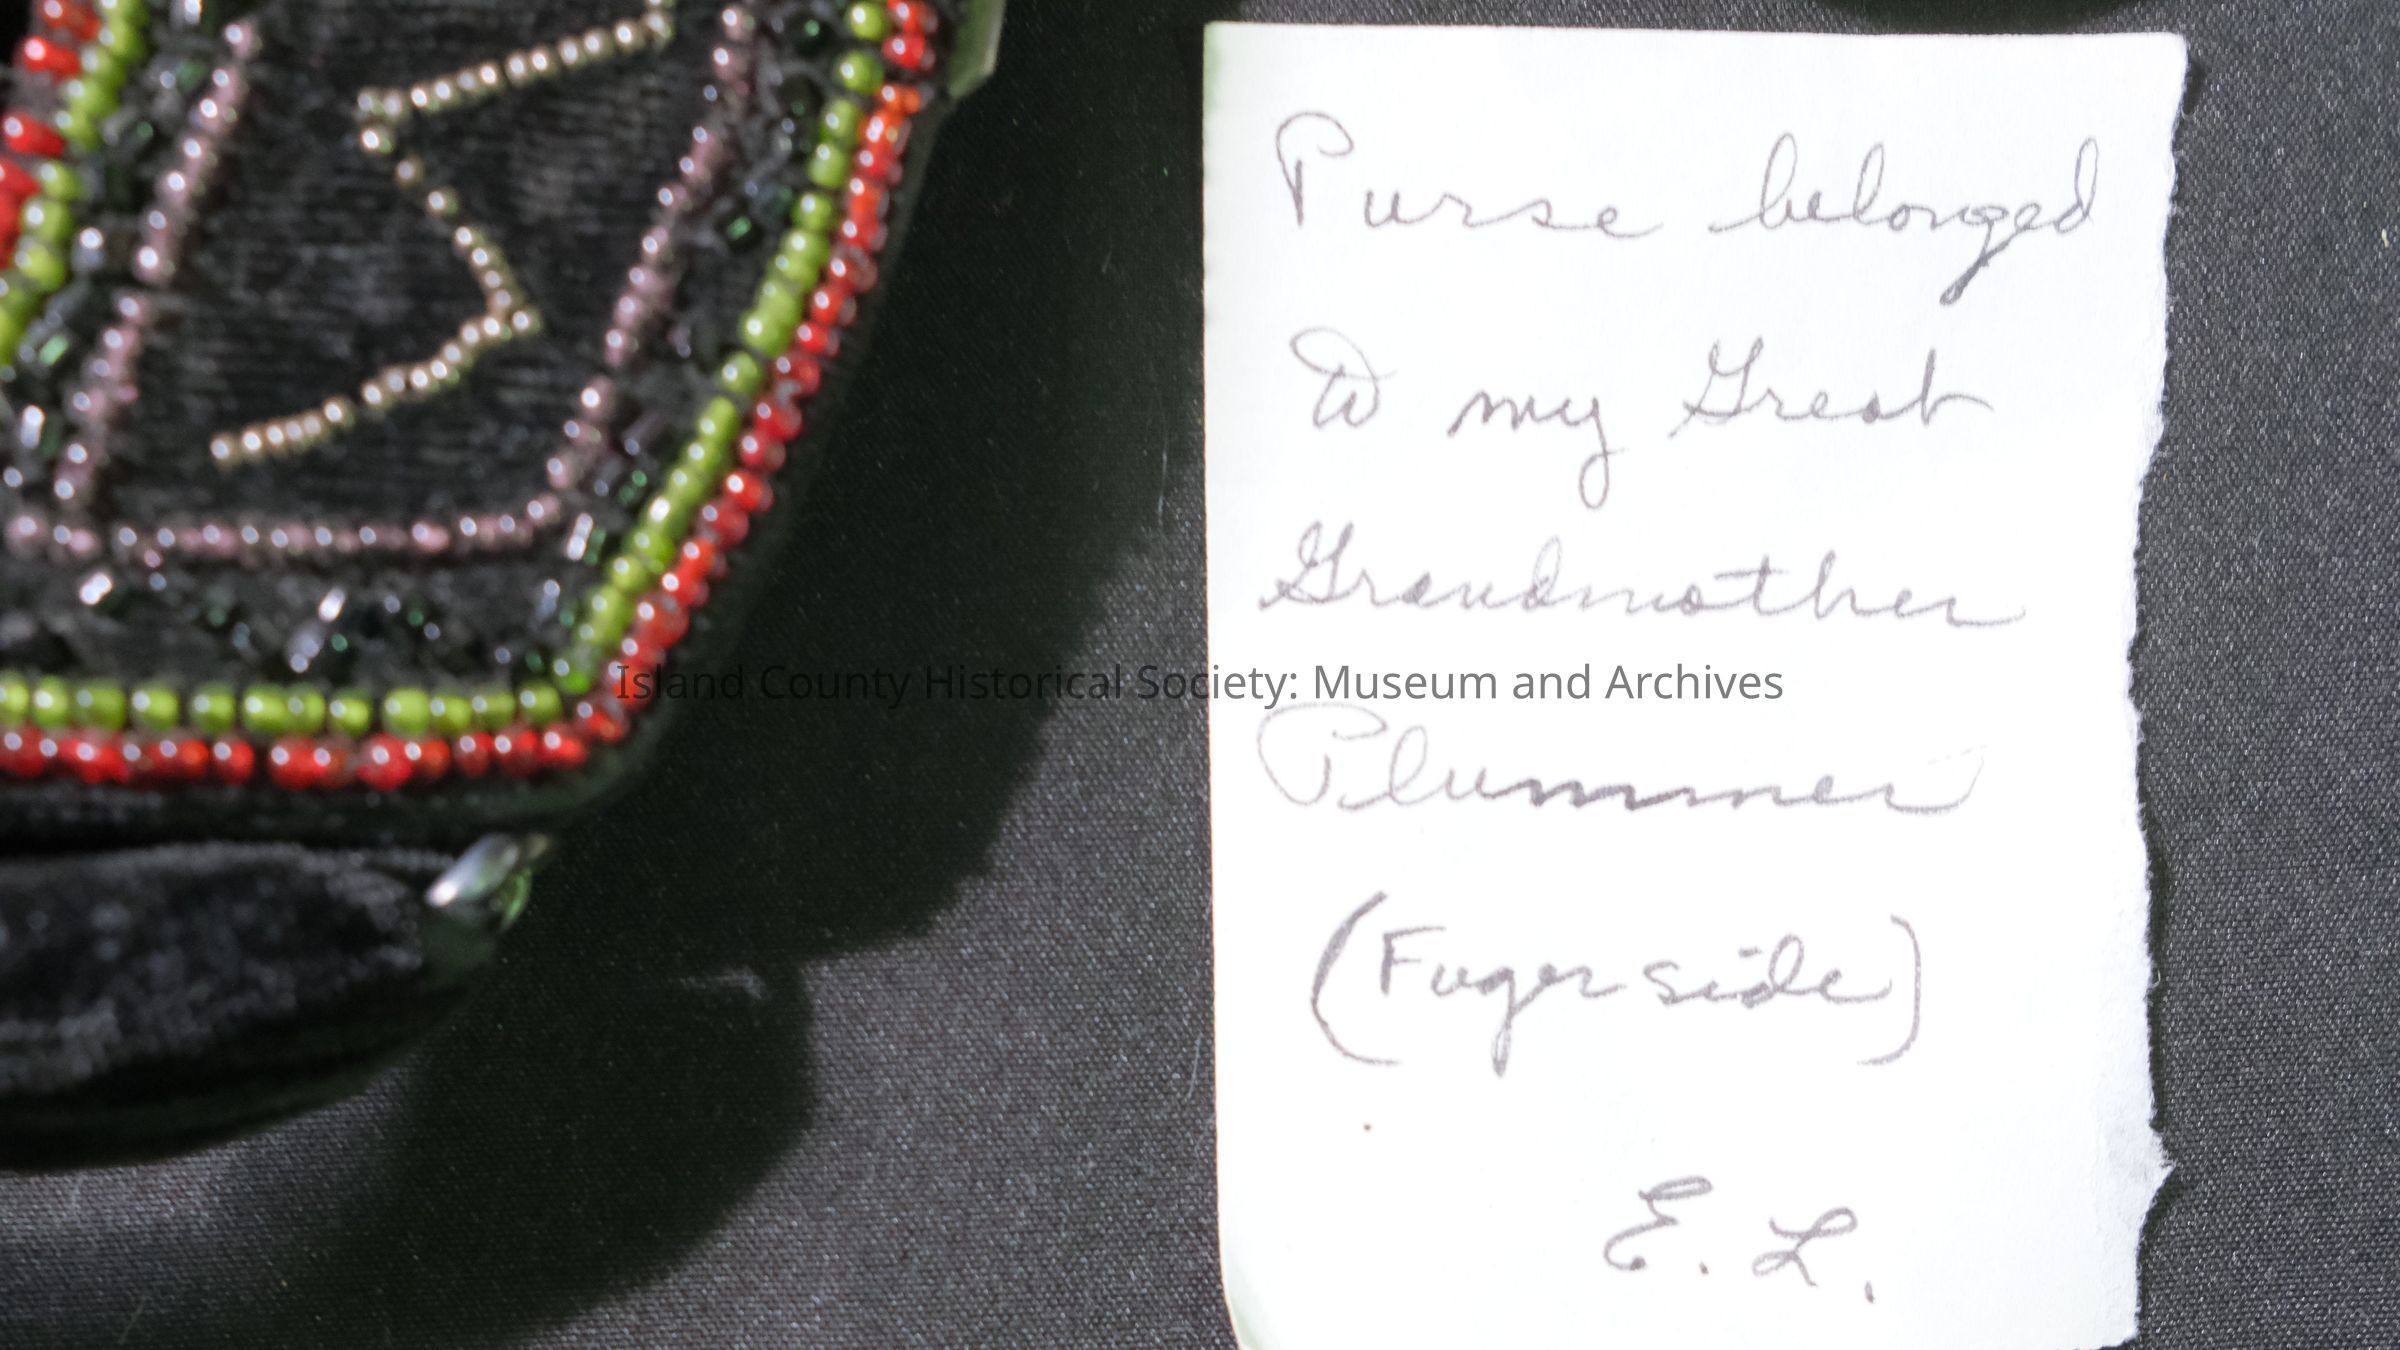 Purse belonged
to my Great
Grandmother
Island County Historical Society: Museum and Archives
Plummer
(Fuger side)
E. L.